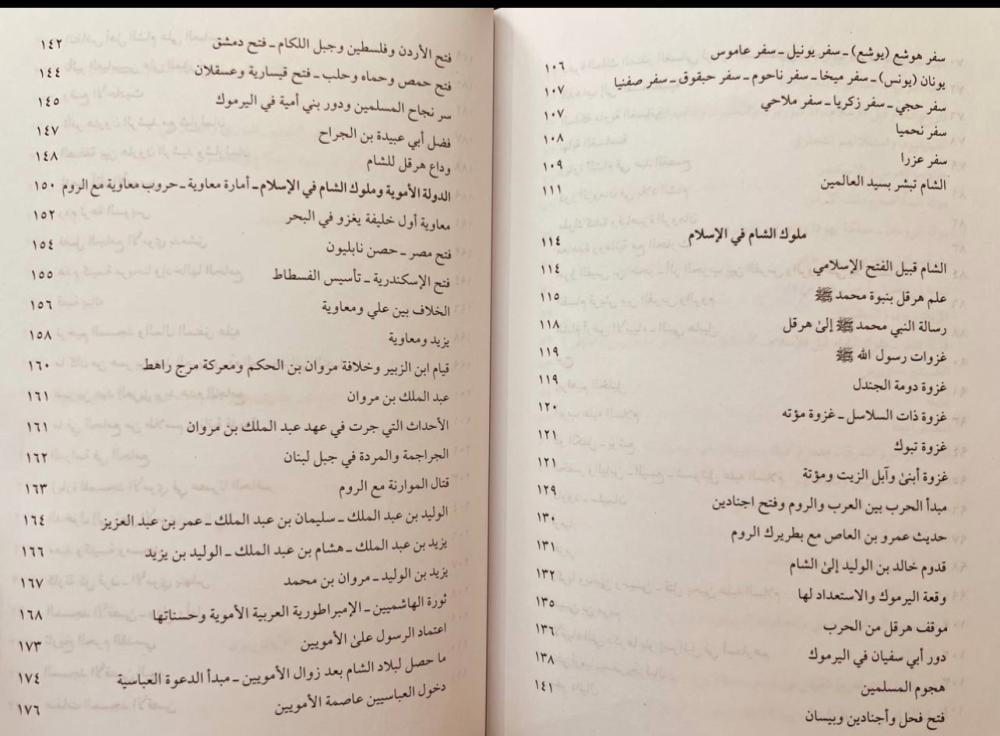 سفر هوشع (يوشع) ـ سفر يونيل ـ سفر عاموس ١٠٦
يونان (يونس) ـ سفر ميخا ـ سفر ناحوم ـ سفر حبقوق ـ سفر صفنيا ١٠٧
سفر حجي ـ سفر زكريا ـ سفر ملاحي ١٠٧
سفر نحميا ١٠٨
سفر عزرا ١٠٩
الشام تبشر بسيد العالمين ١١١
ملوك الشام في الإسلام ١١٤
الشام قبيل الفتح الإسلامي ١١٤
علم هرقل بنبوة محمد ﷺ ١١٥
رسالة النبي محمد ﷺ إلىٰ هرقل ١١٨
غزوات رسول الله ﷺ ١١٩
غزوة دومة الجندل ١١٩
غزوة ذات السلاسل ـ غزوة مؤته ١٢٠
غزوة تبوك ١٢١
غزوة أبنىٰ وآبل الزيت ومؤتة ١٢١
مبدأ الحرب بين العرب والروم وفتح اجنادين ١٢٩
حديث عمرو بن العاص مع بطريرك الروم ١٣٠
قدوم خالد بن الوليد إلىٰ الشام ١٣١
وقعة اليرموك والاستعداد لها ١٣٢
موقف هرقل من الحرب ١٣٥
دور أبي سفيان في اليرموك ١٣٦
هجوم المسلمين ١٣٨
فتح فحل وأجنادين وبيسان ١٤١
فتح الأردن وفلسطين وجبل اللكام ـ فتح دمشق ١٤٢
فتح حمص وحماه وحلب ـ فتح قيسارية وعسقلان ١٤٤
سر نجاح المسلمين ودور بني أمية في اليرموك ١٤٥
فضل أبي عبيدة بن الجراح ١٤٧
وداع هرقل للشام ١٤٨
الدولة الأموية وملوك الشام في الإسلام ـ أمارة معاوية ـ حروب معاوية مع الروم ١٥٠
معاوية أول خليفة يغزو في البحر ١٥٢
فتح مصر ـ حصن نابليون ١٥٤
فتح الإسكندرية ـ تأسيس الفسطاط ١٥٥
الخلاف بين علي ومعاوية ١٥٦
يزيد ومعاوية ١٥٨
قيام ابن الزبير وخلافة مروان بن الحكم ومعركة مرج راهط ١٦٠
عبد الملك بن مروان ١٦١
الأحداث التي جرت في عهد عبد الملك بن مروان ١٦١
الجراجمة والمردة في جبل لبنان ١٦٢
قتال الموارنة مع الروم ١٦٣
الوليد بن عبد الملك ـ سليمان بن عبد الملك ـ عمر بن عبد العزيز ١٦٤
يزيد بن عبد الملك ـ هشام بن عبد الملك ـ الوليد بن يزيد ١٦٦
يزيد بن الوليد ـ مروان بن محمد ١٦٧
ثورة الهاشميين ـ الإمبراطورية العربية الأموية وحسناتها ١٦٨
اعتماد الرسول علىٰ الأمويين ١٧٣
ما حصل لبلاد الشام بعد زوال الأمويين ـ مبدأ الدعوة العباسية ١٧٤
دخول العباسيين عاصمة الأمويين ١٧٦